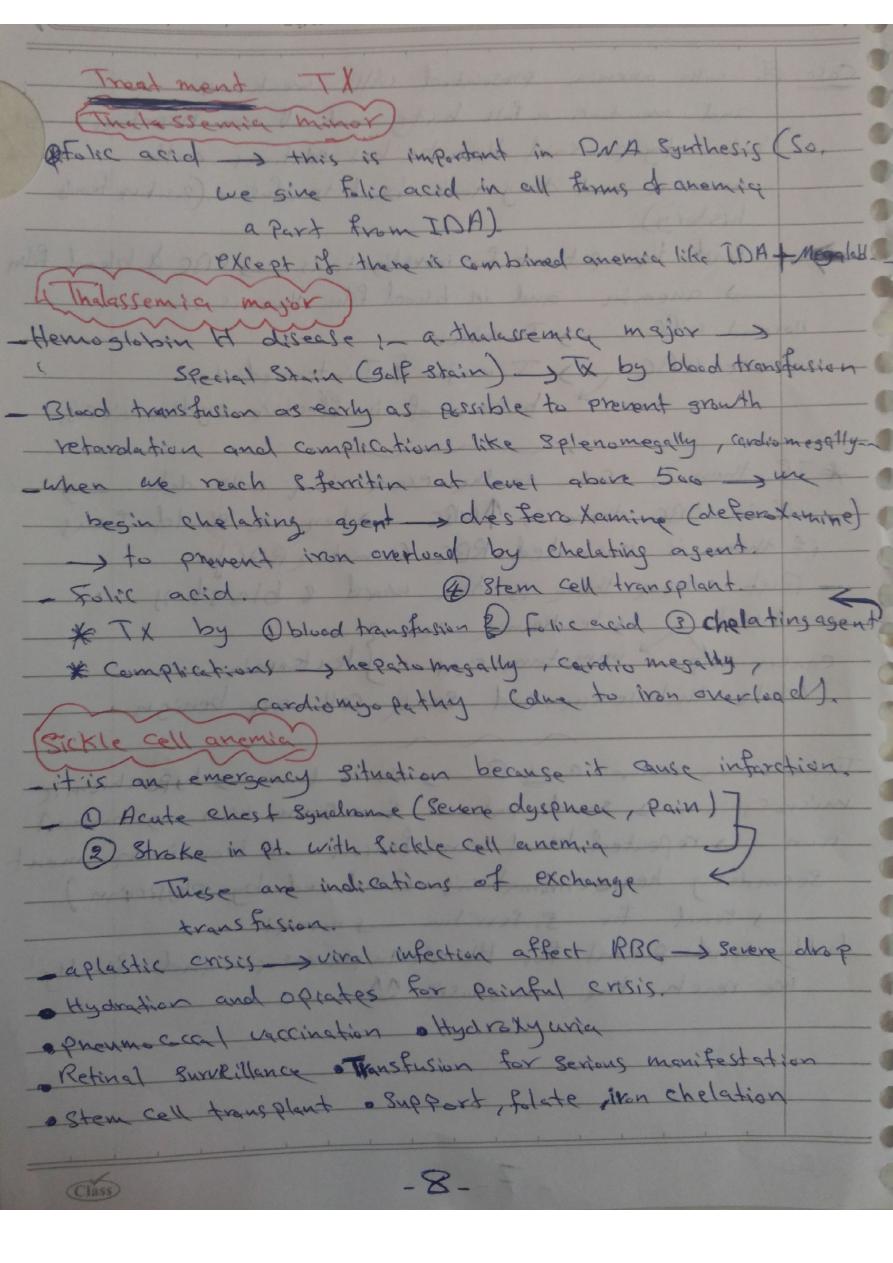 Treatment TX
Thalassemia minor
folic acid → this is important in DNA synthesis (So,
we give folic acid in all forms of anemia
a part from IDA).
except if there is combined anemia like IDA +
Thalassemia major
- Hemoglobin H disease :- a. thalassemia major →
special stain (golf stain) → Tx by blood transfusion
- Blood transfusion as early as possible to prevent growth
retardation and complications like splenomegally, cardiomegally
- when we reach S.ferritin at level above 500 → we
begin chelating agent → desferoxamine (deferoxamine)
→ to prevent iron overload by chelating agent.
- Folic acid. ④ Stem cell transplant.
* TX by ① blood transfusion ② folic acid ③ chelating agent
* Complications → hepatomegally, cardiomegally,
cardiomyopathy (due to iron overload).
Sickle cell anemia
- it is an emergency situation because it cause infarction.
- ① Acute chest syndrome (severe dyspnea, pain)
② Stroke in pt. with sickle cell anemia
These are indications of exchange
transfusion.
- aplastic crisis → viral infection affect RBC → severe drop
• Hydration and opiates for painful crisis.
• pneumococcal vaccination • Hydroxyuria
• Retinal surveillance • Transfusion for serious manifestation
• Stem cell transplant • Support, folate, iron chelation
Class
-8-